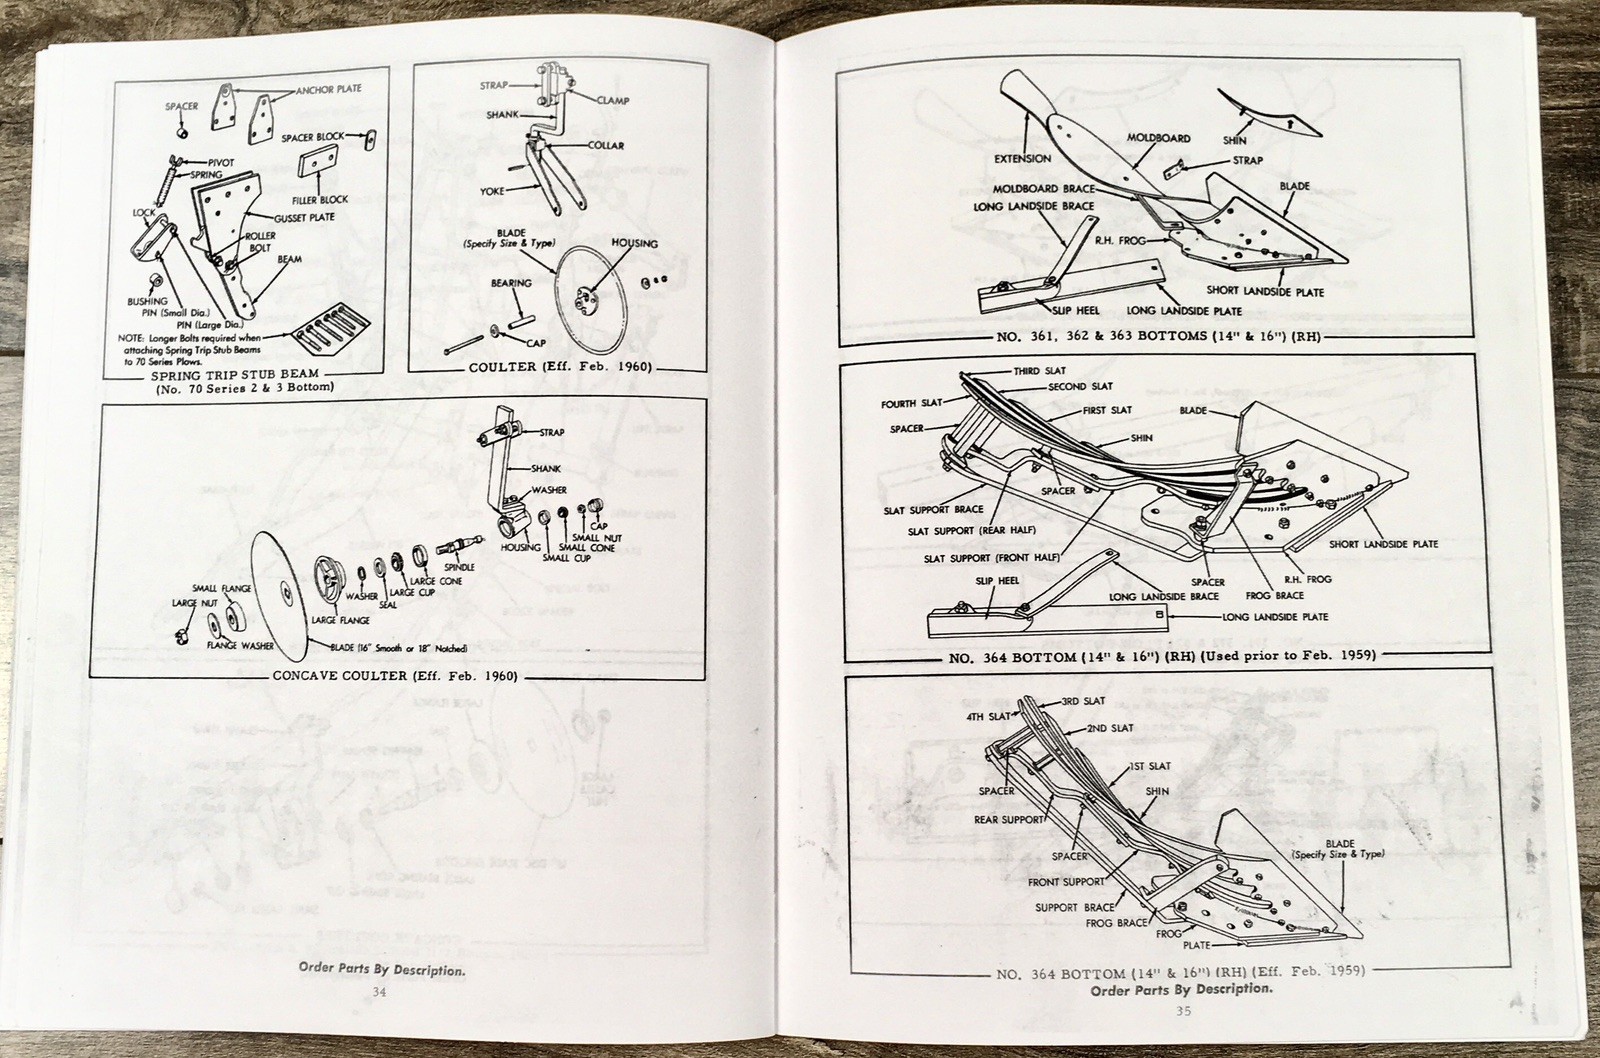 ANCHOR PLATE
SPACER
SPACER BLOCK
PIVOT
SPRING
FILLER BLOCK
LOCK
GUSSET PLATE
ROLLER
BOLT
BEAM
BUSHING
PIN (Small Dia.)
PIN (Large Dia.)
NOTE: Longer Bolts required when
attaching Spring Trip Stub Beams
to 70 Series Plows.
SPRING TRIP STUB BEAM
(No. 70 Series 2 & 3 Bottom)
STRAP
CLAMP
SHANK
COLLAR
YOKE
BLADE
(Specify Size & Type)
HOUSING
BEARING
CAP
COULTER (Eff. Feb. 1960)
STRAP
SHANK
WASHER
CAP
SMALL NUT
HOUSING
SMALL CONE
SMALL CUP
SPINDLE
LARGE CONE
LARGE CUP
WASHER
SEAL
SMALL FLANGE
LARGE NUT
LARGE FLANGE
FLANGE WASHER
BLADE (16" Smooth or 18" Notched)
CONCAVE COULTER (Eff. Feb. 1960)
Order Parts By Description.
34
EXTENSION
MOLDBOARD
SHIN
STRAP
MOLDBOARD BRACE
BLADE
LONG LANDSIDE BRACE
R.H. FROG
SHORT LANDSIDE PLATE
SLIP HEEL
LONG LANDSIDE PLATE
NO. 361, 362 & 363 BOTTOMS (14" & 16") (RH)
THIRD SLAT
SECOND SLAT
FOURTH SLAT
FIRST SLAT
BLADE
SPACER
SHIN
SPACER
SLAT SUPPORT BRACE
SLAT SUPPORT (REAR HALF)
SHORT LANDSIDE PLATE
SLAT SUPPORT (FRONT HALF)
SLIP HEEL
SPACER
R.H. FROG
LONG LANDSIDE BRACE
FROG BRACE
LONG LANDSIDE PLATE
NO. 364 BOTTOM (14" & 16") (RH) (Used prior to Feb. 1959)
3RD SLAT
4TH SLAT
2ND SLAT
1ST SLAT
SPACER
SHIN
REAR SUPPORT
BLADE
(Specify Size & Type)
SPACER
FRONT SUPPORT
SUPPORT BRACE
FROG BRACE
FROG
PLATE
NO. 364 BOTTOM (14" & 16") (RH) (Eff. Feb. 1959)
Order Parts By Description.
35